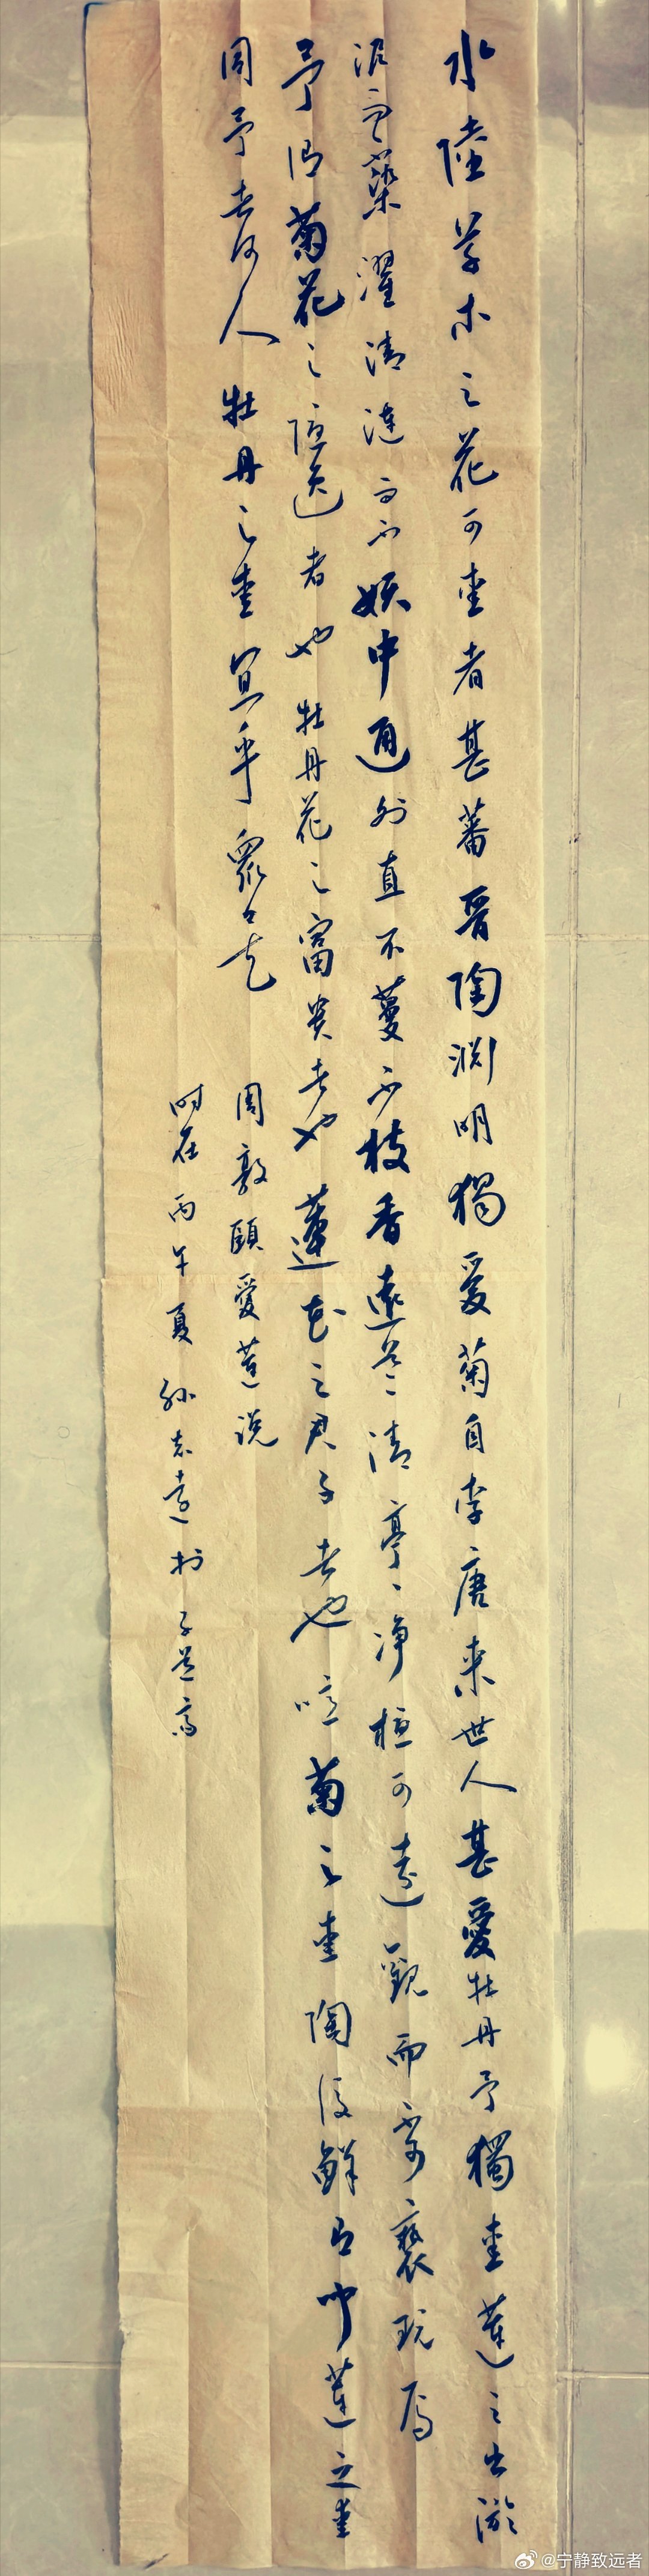 水陸草木之花可爱者甚蕃晋陶渊明獨爱菊自李唐来世人甚愛牡丹予獨爱蓮之出淤
泥而不染濯清涟而不妖中通外直不蔓不枝香遠益清亭亭净植可遠觀而不可褻玩焉
予谓菊花之隐逸者也牡丹花之富贵者也蓮花之君子者也噫菊之爱陶後鲜有闻蓮之爱
同予者何人牡丹之爱宜乎眾矣
周敦頤愛蓮说
时在丙午夏孙志遠书
@宁静致远者